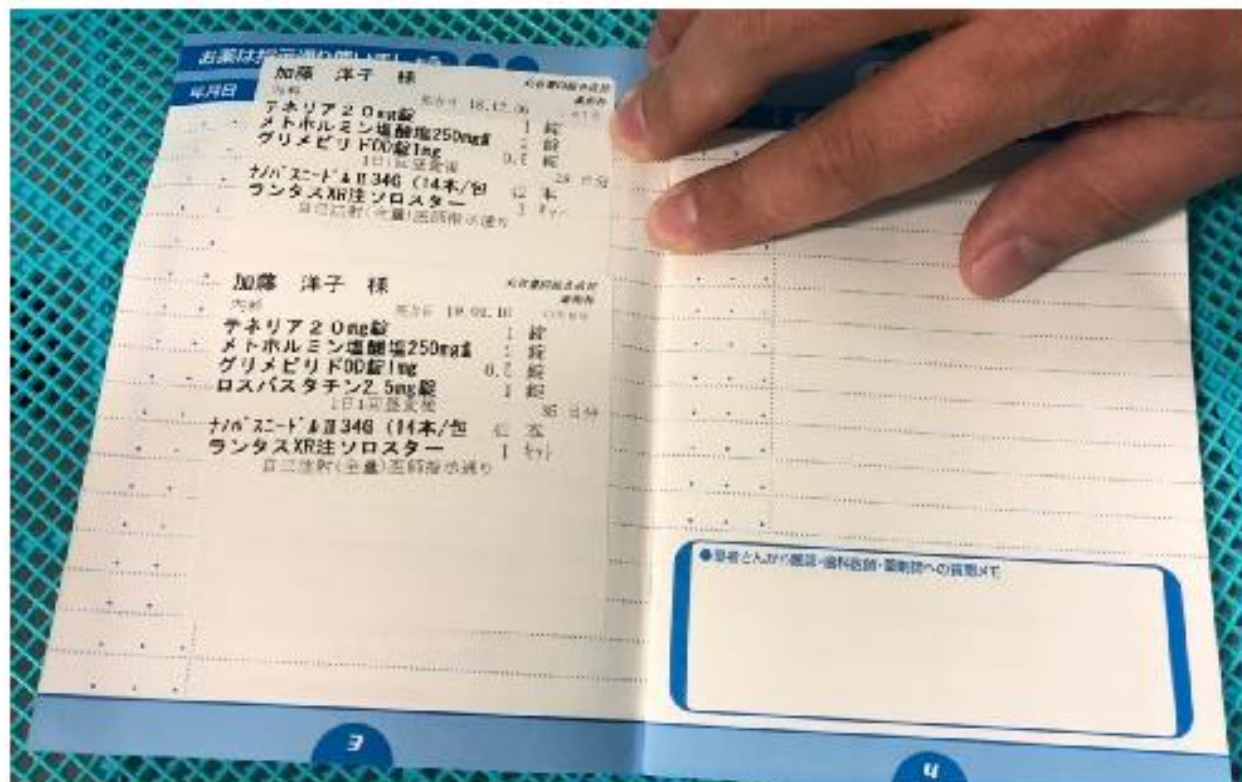 年月日
加藤 洋子 様
内科 処方日 18.12.06
テネリア20mg錠 1 錠
メトホルミン塩酸塩250mg錠 2 錠
グリメピリドOD錠1mg 0.5 錠
1日1回昼食後 28 日分
ナノパスニードルⅡ34G (14本/包 42 本
ランタスXR注ソロスター 1 キット
自己注射(全量)医師指示通り
加藤 洋子 様
内科
テネリア20mg錠 1 錠
メトホルミン塩酸塩250mg錠 2 錠
グリメピリドOD錠1mg 0.5 錠
ロスバスタチン2.5mg錠 1 錠
1日1回昼食後 35 日分
ナノパスニードルⅡ34G (14本/包 42 本
ランタスXR注ソロスター 1 キット
自己注射(全量)医師指示通り
●患者さんから医師・歯科医師・薬剤師への質問メモ
3
4